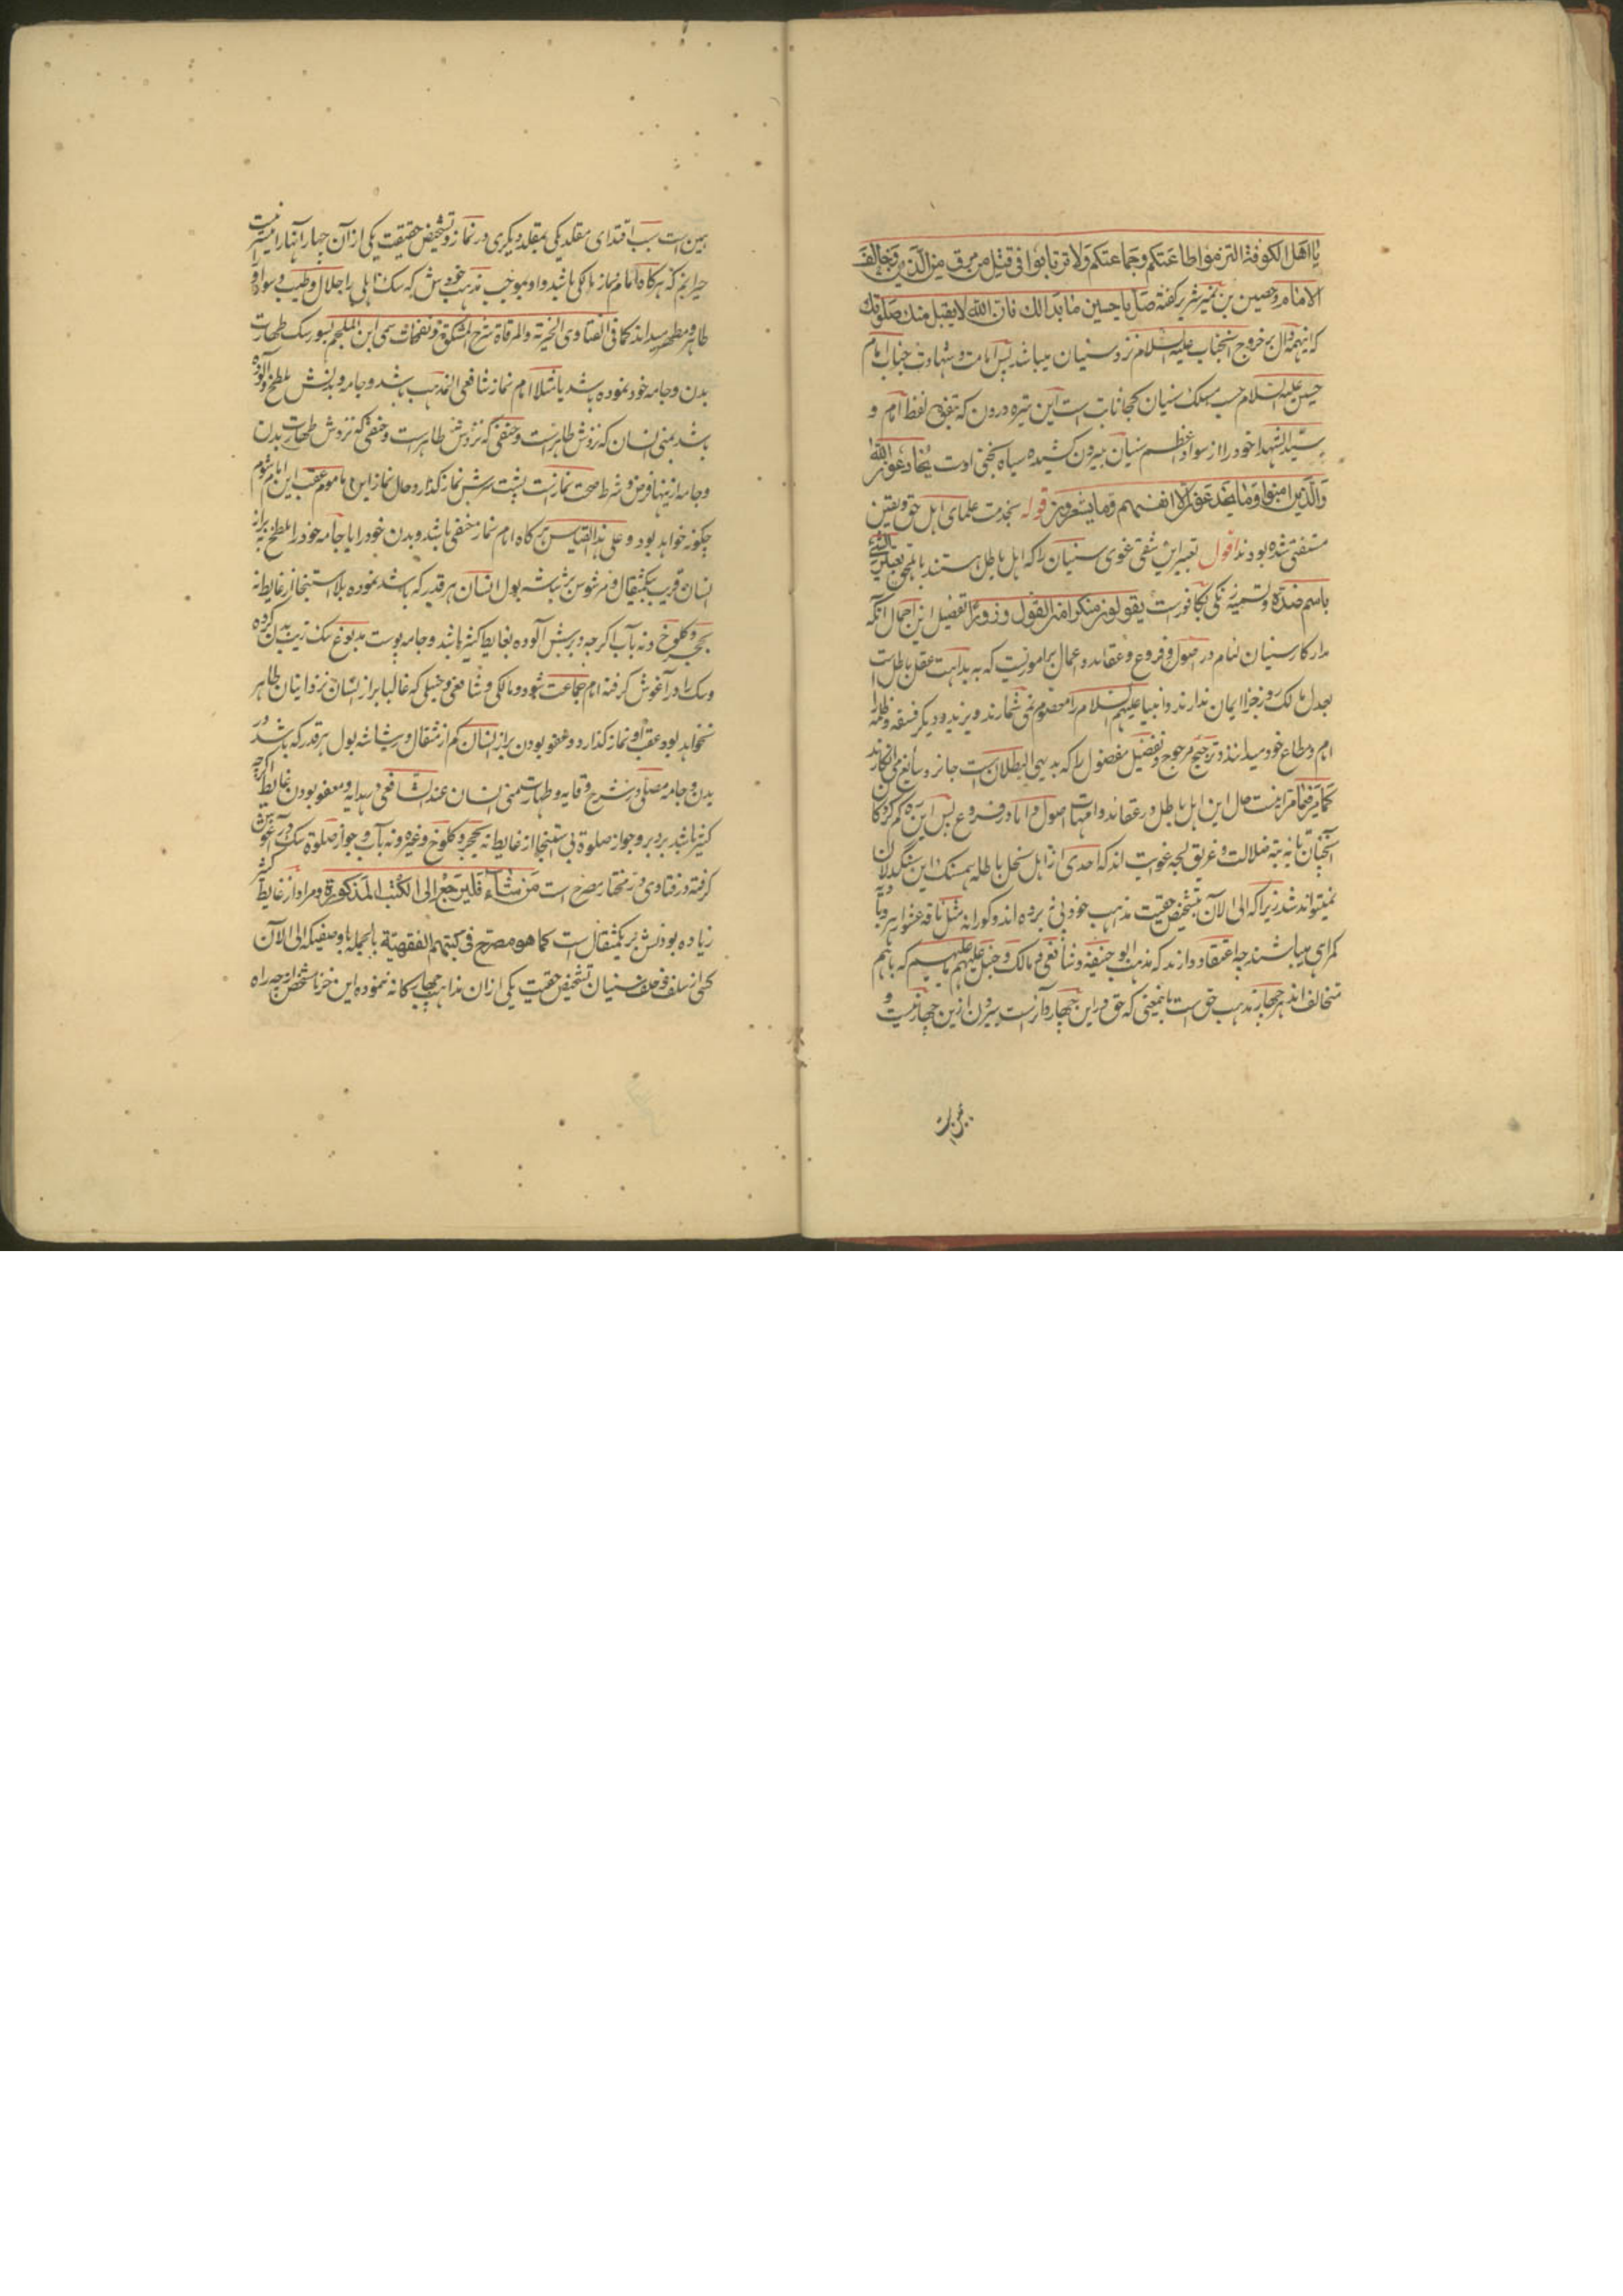 یا اهل الکوفة التزموا طاعتکم وجماعتکم ولا ترتابوا فی قتل من مرق من الدین وخالف
الامام وحصین بن نمیر شریر گفته صل یا حسین ما بدا لک فان الله لا یقبل منک صلوتک
که اینهمه دال بر خروج آنجناب علیه السلام نزد سنیان میباشد پس امامت و شهادت جناب امام
حسین علیه السلام حسب مسلک سنیان کجا ثابت است این تیره درون که بتفوه لفظ امام و
سید الشهدا خود را از سواد اعظم سنیان بیرون کشیده سیاه بختی اوست یخادعون الله
والذین امنوا وما یخدعون الا انفسهم وما یشعرون قوله بخدمت علمای اهل حق و یقین
مستفتی شده بودند اقول تعبیر این شقی غوی سنیان را که اهل باطل هستند باهل حق تسمیة الشیء
باسم ضده و تسمیه زنگی بکافورست یقولون منکرا من القول وزورا تفصیل این اجمال آنکه
مدار کار سنیان لئام در اصول و فروع و عقائد و اعمال بر اموریست که به بداهت عقل باطل است
بعدل مالک روز جزا ایمان ندارند و انبیا علیهم السلام را معصوم نمی شمارند و یزید و دیگر فسقه و ظلمه را
امام و مطاع خود میدانند و ترجیح مرجوح و تفضیل مفضول را که بدیهی البطلان است جائز و سائغ می انگارند
کما مر فیما مر اینست حال این اهل باطل در عقائد و امهات اصول و اما در فروع پس این گم کردگان
آنچنان تائه تیه ضلالت و غریق لجه غوایت اند که احدی از اهل نحل باطله همسنگ این سنگدلان
نمیتواند شد زیرا که الی الآن بتشخیص حقیت مذهب خود پی نبرده اند و کورانه مثل ناقه عشوا هر دو تیه
گمراهی میباشند چه اعتقاد دارند که مذهب ابو حنیفه و شافعی و مالک و حنبل علیهم ما علیهم که باهم
متخالف اند هر چهار مذهب حق است باینمعنی که حق در این چهار دائرست بیرون ازین چهار نیست و
همین است سبب اقتدای مقلد یکی بمقلد دیگری در نماز و تشخیص حقیقت یکی از آن چهار آنها را میسر نیست
حیرانم که هرگاه امام نماز مالکی باشد و او بموجب مذهب خودش که سگ اهلی را حلال و طیب و سور او
طاهر و مطهر میداند کما فی الفتاوی الخیریة والمرقاة شرح المشکوة و نفحات سمی ابن الملجم بسور سگ طهارت
بدن و جامه خود نموده باشد یا مثلا امام نماز شافعی المذهب باشد و جامه و بدنش ملطخ و آلوده
باشد بمنی انسان که نزدش طاهرست و حنفی که نزدش طاهرست و حنفی که نزدش طهارت بدن
و جامه از ینها فرض و شرط صحت نمازست پشت سرش نماز گذارد حال نماز این ماموم عقب این امام شوم
چگونه خواهد بود و علی هذا القیاس هرگاه امام نماز حنفی باشد و بدن خود را یا جامه خود را ملطخ به براز
انسان قریب یکمثقال و مرشوش برشاشه بول انسان هر قدر که باشد نموده بلا استنجا از غایط نه
بحجر و کلوخ و نه بآب اگرچه دبرش آلوده بغایط کثیر باشد و جامه پوست مدبوغ سگ زیب بدن کرده
و سگ را در آغوش گرفته امام جماعت شود و مالکی و شافعی و حنبلی که غالبا براز انسان نزد اینان طاهر
نخواهد بود عقب او نماز گذارد و عفو بودن براز انسان کم از مثقال و رشاشه بول هر قدر که باشد در
بدن و جامه مصلی در شرح وقایه و طهارت منی انسان عند الشافعی در هدایه و معفو بودن غایط اگرچه
کثیر باشد بر دبر و جواز صلوة بی استنجا از غایط نه بحجر و کلوخ و غیره و نه بآب و جواز صلوة سگ در آغوش
گرفته در فتاوی در مختار مصرح است من شاء فلیرجع الی الکتب المذکورة و مراد از غایط کثیر
زیاده بودنش بر یکمثقال ست کما هو مصرح فی کتبهم الفقهیة بالجمله با وصفیکه الی الآن
کسی از سلف و خلف سنیان تشخیص حقیت یکی ازان مذاهب چهارگانه ننموده این خر نامشخص از چه راه